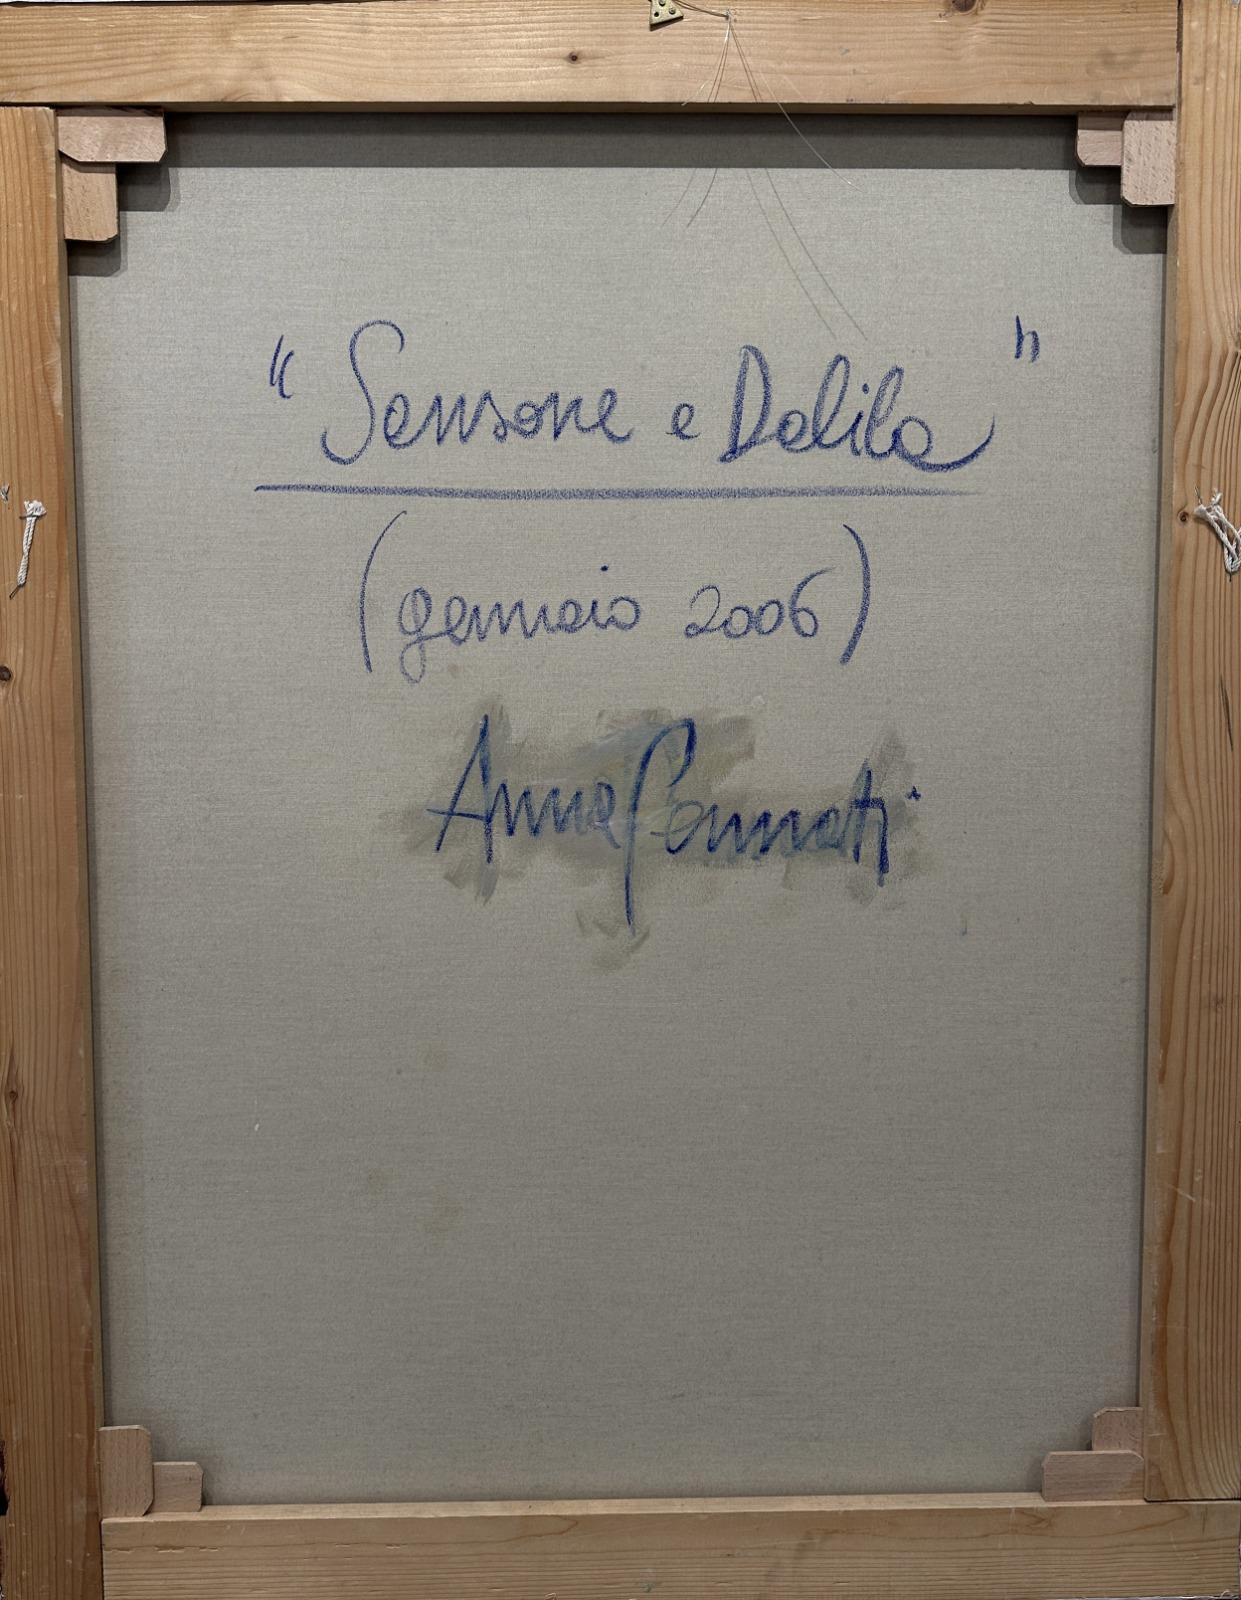 "Sansone e Dalila"
(gennaio 2006)
Anna Pennati